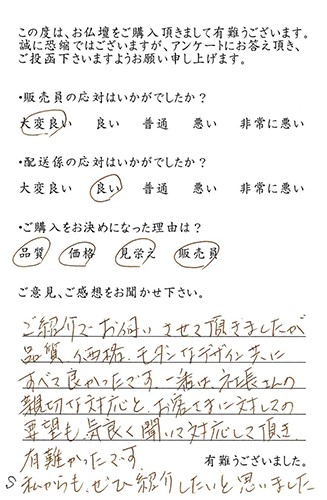 この度は、お仏壇をご購入頂きまして有難うございます。
誠に恐縮ではございますが、アンケートにお答え頂き、
ご投函下さいますようお願い申し上げます。
・販売員の応対はいかがでしたか？
大変良い 良い 普通 悪い 非常に悪い
・配送係の応対はいかがでしたか？
大変良い 良い 普通 悪い 非常に悪い
・ご購入をお決めになった理由は？
品質 価格 見栄え 販売員
ご意見、ご感想をお聞かせ下さい。
ご紹介でお伺いさせて頂きましたが
品質、価格、モダンなデザイン共に
すべて良かったです。一番は、社長さんの
親切な対応と、お客に対しての
要望も、気良く聞いて対応して頂き、
有難かったです。
有難うございました。
S 私からも、ぜひ紹介したいと思いました